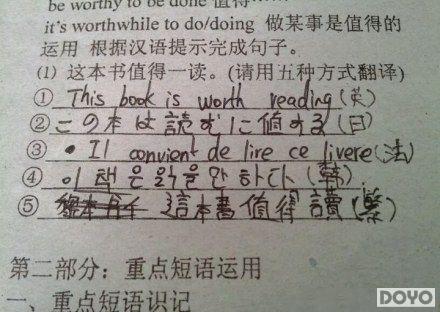 be worthy to be done 值得
it's worthwhile to do/doing 做某事是值得的
运用 根据汉语提示完成句子。
(1) 这本书值得一读。(请用五种方式翻译)
① This book is worth reading (英)
② この本は読むに値する (日)
③ • Il convient de lire ce livere (法)
④ 이 책은 읽을만 하다 (韩)
⑤ 這本書值得讀 (繁)
第二部分：重点短语运用
一、重点短语识记
DOYO